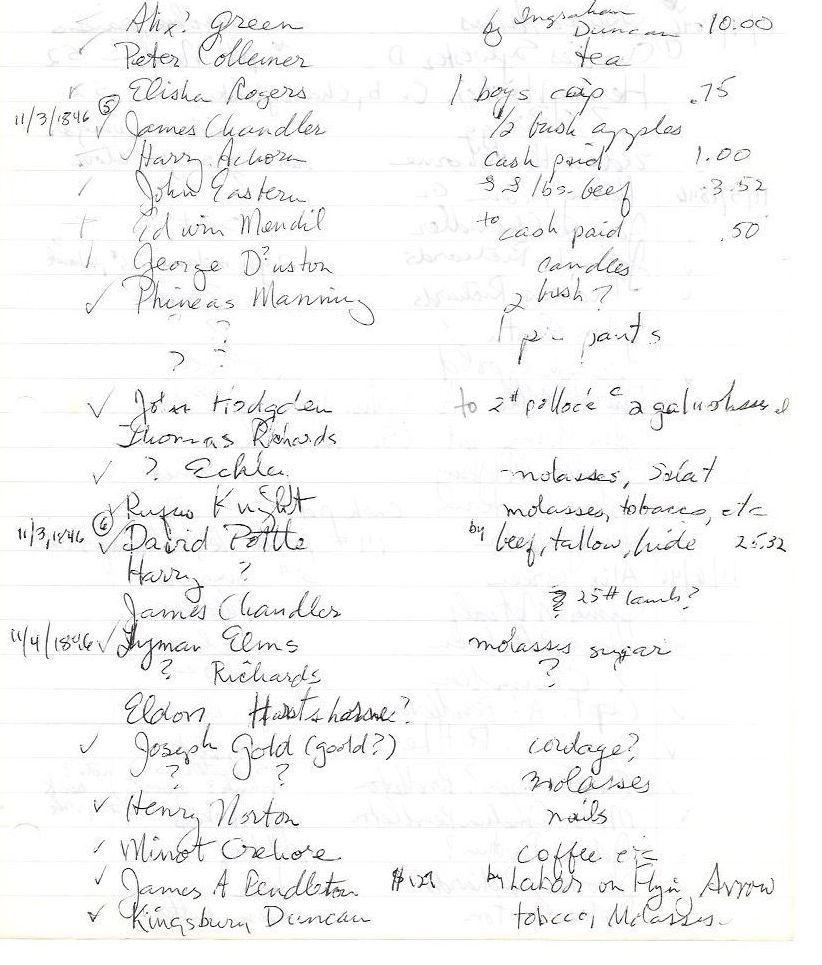 Alix? Green by Ingraham Duncan 10.00
Peter Collemer tea
Elisha Rogers 1 boys cap .75
11/3/1846 (5) ✓ James Chandler 1/2 bush apples
Harry Achorn cash paid 1.00
John Eastern lbs beef 3.52
+ Edwin Mendil to cash paid .50
George D?uston candles
✓ Phineas Manning 2 bush ?
? 1 pr pants
? ?
✓ John Hodgden to 2# pollock c 2 gal molasses
Thomas Richards
✓ ? Eckla molasses, Salat
✓ Rufus Knight molasses, tobacco, etc
11/3,1846 (6) ✓ David Pottle by beef, tallow, hide 25.32
Harry ?
James Chandler ? 25# lamb?
11/4/1846 ✓ Lyman Elms molasses sugar
? Richards ?
Eldon Hartshorne?
✓ Joseph Gold (goold?) cordage?
? ? molasses
✓ Henry Norton nails
✓ Minot Crehore coffee etc
✓ James A Pendleton by Labor on Flying Arrow
✓ Kingsbury Duncan tobacco, Molasses